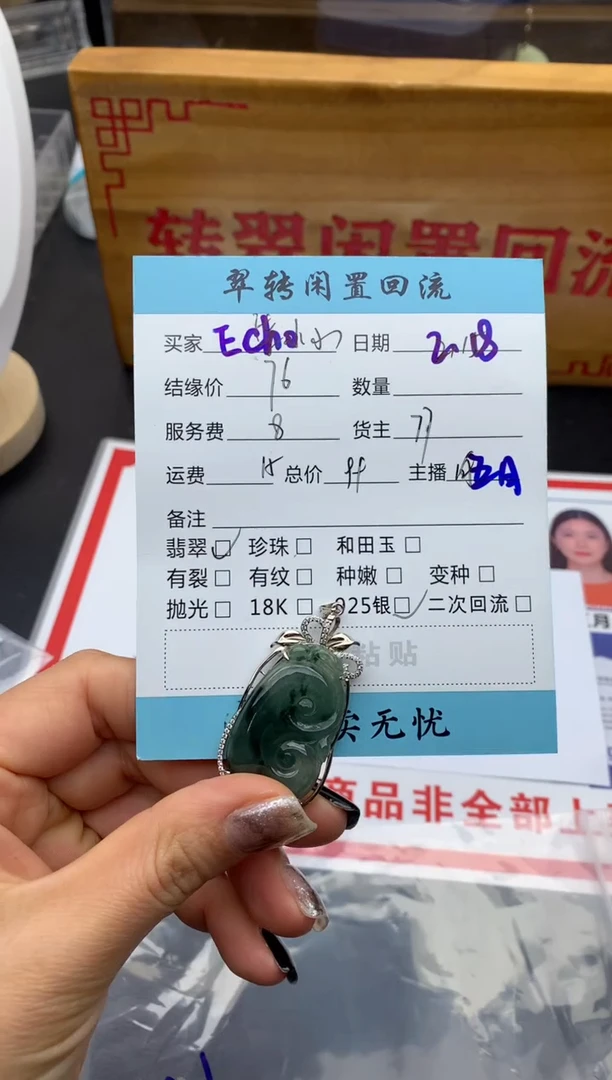 转翠闲置回流
翠转闲置回流
买家 Echo 日期 2.18
结缘价 76 数量
服务费 8 货主 77
运费 15 总价 99 主播 五月
备注
翡翠☑ 珍珠□ 和田玉□
有裂□ 有纹□ 种嫩□ 变种□
抛光□ 18K□ 925银☑ 二次回流□
粘贴
实无忧
月
商品非全部上